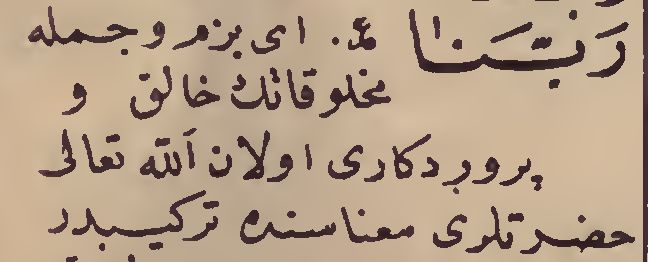 رَبَّنَا ع. ای بزم و جمله
مخلوقاتك خالق و
پروردكاری اولان آلله تعالی
حضرتلری معناسنده تركیبدر